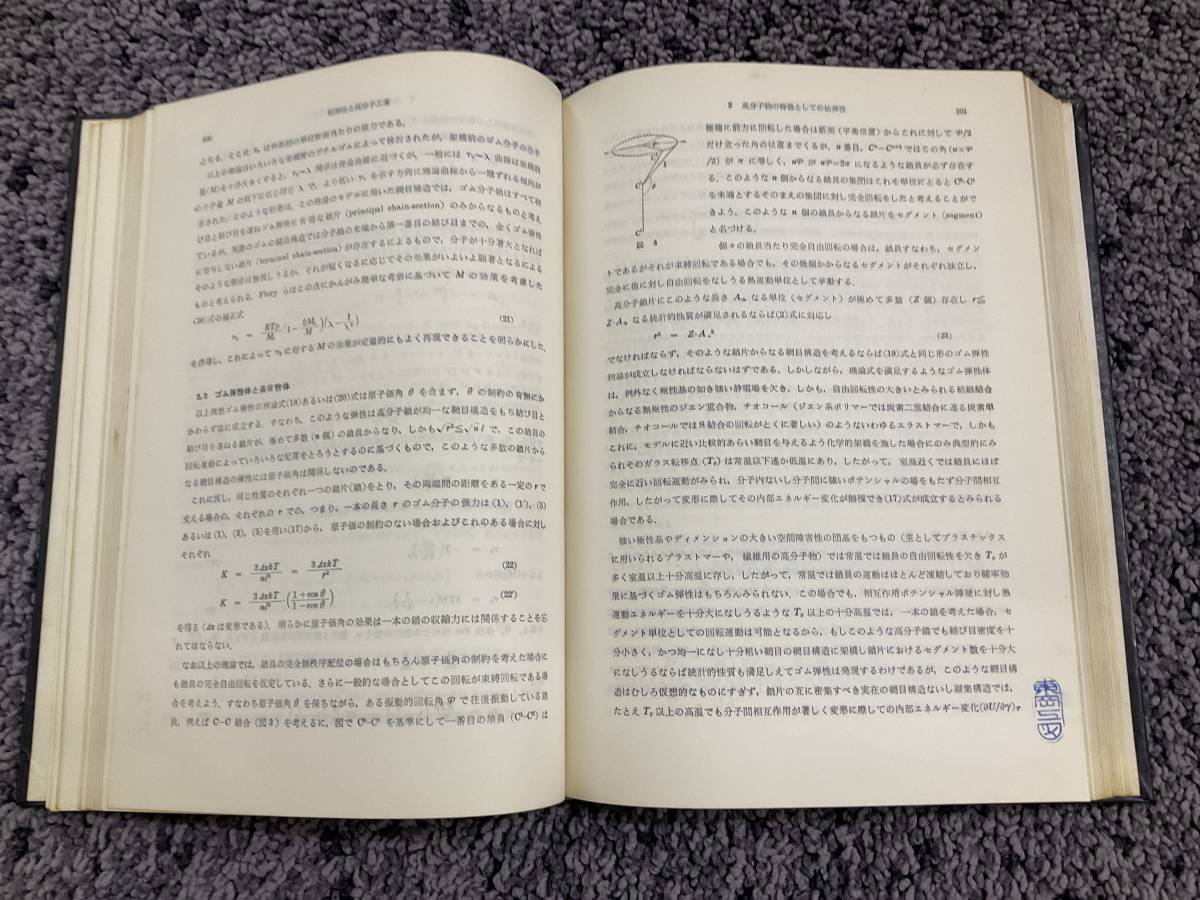 粘弾性と高分子工業
100
となる．ここに τ₀ は伸長前の単位断面当たりの張力である．
以上の理論はいろいろな架橋度のブチルゴムによって検討されたが，架橋前のゴム分子の分子
量(M)を十分大きくすると，τ₀〜λ 関係は理論曲線に近づくが，一般には τ₀〜λ 曲線は架橋前
の分子量 M の低下に応じ同じ λ で，より低い τ₀ を示す方向に理論曲線から一層ずれる傾向が
示された．このような効果は，この理論のモデルに用いた網目構造では，ゴム分子鎖はすべて結
び目と結び目を連ねゴム弾性に有効な鎖片 (principal chain-section) のみからなるものと考え
ているが，現実のゴムの網目構造では分子鎖の末端から第一番目の結び目までの，全くゴム弾性
に寄与しない鎖片 (terminal chain-section) が存在するによるもので，分子が十分長大となれば
そのような部分は無視しうるが，それが短くなるに応じてその効果がいよいよ顕著となるによる
ものと考えられる．Flory らはこの点にかんがみ簡単な考察に基づいて M の効果を考慮した
(20)式の補正式
τ₀ = RTρ/Mc (1−2Mc/M)(λ−1/λ²) (21)
を誘導し，これによって τ₀ に対する M の効果が定量的にもよく再現できることを明らかにした．
2.2 ゴム弾性体と高弾性体
以上理想ゴム弾性の理論式(19)あるいは(20)式は原子価角 θ を含まず，θ の制約の有無にか
かわらず常に成立する．すなわち，このような弾性は高分子鎖が均一な網目構造をもち結び目と
結び目を連ねる鎖片が，極めて多数 (n 個) の鎖員からなり，しかも √r²≦√n l で，この鎖員の
回転運動によっていろいろな配置をとろうとするのに基づくもので，このような多数の鎖片から
なる網目構造の弾性には原子価角は関係しないのである．
これに反し，同じ性質のそれぞれ一つの鎖片(鎖)をとり，その両端間の距離をある一定の r で
支える場合の，それぞれの r での，つまり，一本の長さ r のゴム分子の張力は (1)，(1′)，(5)
あるいは (1)，(2)，(5)を用い(17)から，原子価の制約のない場合およびこれのある場合に対し
それぞれ
K = 3ΔxkT/nl² = 3ΔxkT/r² (22)
K = 3ΔxkT/nl²·(1+cosθ/1−cosθ) (22′)
を得る (Δx は変形である)．明らかに原子価角の効果は一本の鎖の収縮力には関係することを忘
れてはならない．
なお以上の理論では，鎖員の完全無秩序配位の場合はもちろん原子価角の制約を考えた場合に
も鎖員の完全自由回転を仮定している．さらに一般的な場合としてこの回転が束縛回転である場
合を考えよう．すなわち原子価角 θ を保ちながら，ある振動的回転角 φ で往復振動している鎖
員，例えば C–C 結合 (図3) を考えるに，図で C⁰–C¹ を基準にして一番目の鎖員 (C¹–C²) は
3 高分子物の特徴としての粘弾性
101
図 3
極端に前方に回転した場合は紙面 (平衡位置) からこれに対して φ/2
だけ立った角の位置までくるが，n 番目，Cⁿ–Cⁿ⁺¹ ではこの角 (n×φ
/2) が π に等しく，nφ が nφ=2π になるような鎖員が必ず存在す
る．このような n 個からなる鎖員の集団はこれを単位にとると C⁰–C¹
を末端とするそのまえの集団に対し完全回転をしたと考えることがで
きよう．このような n 個の鎖員からなる鎖片をセグメント (segment)
と名づける．
個々の鎖員当たり完全自由回転の場合は，鎖員すなわち，セグメン
トであるがそれが束縛回転である場合でも，その幾個かからなるセグメントがそれぞれ独立し，
完全に他に対し自由回転をなしうる熱運動単位として挙動する．
高分子鎖片にこのような長さ Aₘ なる単位 (セグメント) が極めて多数 (Z 個) 存在し r≦
Z·Aₘ なる統計的性質が満足されるならば(2)式に対応し
r² = Z·Aₘ² (23)
でなければならず，そのような鎖片からなる網目構造を考えるならば(19)式と同じ形のゴム弾性
理論が成立しなければならないはずである．しかしながら，理論式を満足するようなゴム弾性体
は，例外なく極性基の如き強い静電場を欠き，しかも，自由回転性の大いとみられる結鎖結合
からなる類極性のジエン重合物，チオコール (ジエン系ポリマーでは炭素二重結合に連る炭素単
結合，チオコールでは S 結合の回転がとくに著しい) のようないわゆるエラストマーで，しかも
これに，モデルに近い比較的あらい網目を与えるよう化学的架橋を施した場合にのみ典型的にみ
られそのガラス転移点 (Tg) は常温以下遙か低温にあり，したがって，室温近くでは鎖員にほぼ
完全に近い回転運動がみられ，分子内ないし分子間に強いポテンシャルの場をもたず分子間相互
作用，したがって変形に際してその内部エネルギー変化が無視でき(17)式が成立するとみられる
場合である．
強い極性基やディメンションの大きい空間障害性の団基をもつもの (主としてプラスチックス
に用いられるプラストマーや，繊維用の高分子物) では常温では鎖員の自由回転性を欠き Tg が
多く室温以上十分高温に存し，したがって，常温では鎖員の運動はほとんど凍結しており確率効
果に基づくゴム弾性はもちろんみられない．この場合でも，相互作用ポテンシャル障壁に対し熱
運動エネルギーを十分大になしうるような Tg 以上の十分高温では，一本の鎖を考えた場合，セ
グメント単位としての回転運動は可能となるから，もしこのような高分子鎖でも結び目密度を十
分小さく，かつ均一になし十分粗い網目の網目構造に架橋し鎖片におけるセグメント数を十分大
になしうるならば統計的性質も満足しえてゴム弾性は発現するわけであるが，このような網目構
造はむしろ仮想的なものにすぎず，鎖片の互に密集すべき実在の網目構造ないし凝集構造では，
たとえ Tg 以上の高温でも分子間相互作用が著しく変形に際しての内部エネルギー変化(∂U/∂γ)T